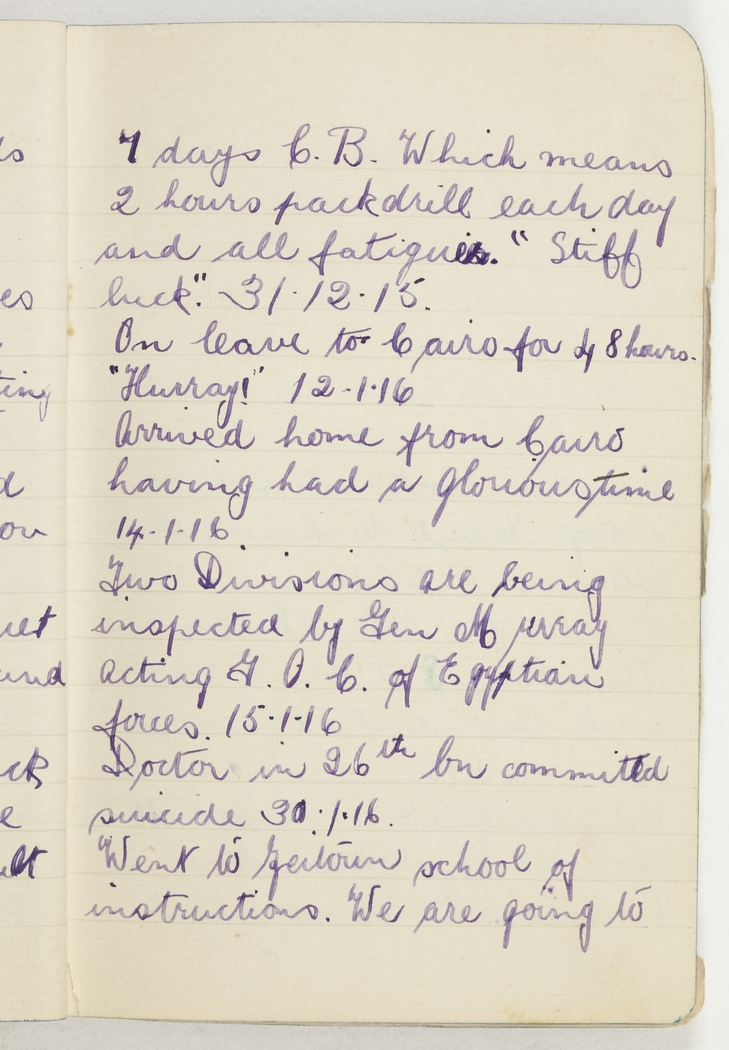 7 days C.B. Which means
2 hours packdrill each day
and all fatigues. "Stiff
luck". 31.12.15.
On leave to Cairo for 48 hours.
"Hurray!" 12.1.16
Arrived home from Cairo
having had a glorious time
14.1.16
Two Divisions are being
inspected by Gen Murray
acting G.O.C. of Egyptian
forces. 15.1.16
Doctor in 26th bn committed
suicide 30.1.16.
Went to Zeitoun school of
instructions. We are going to